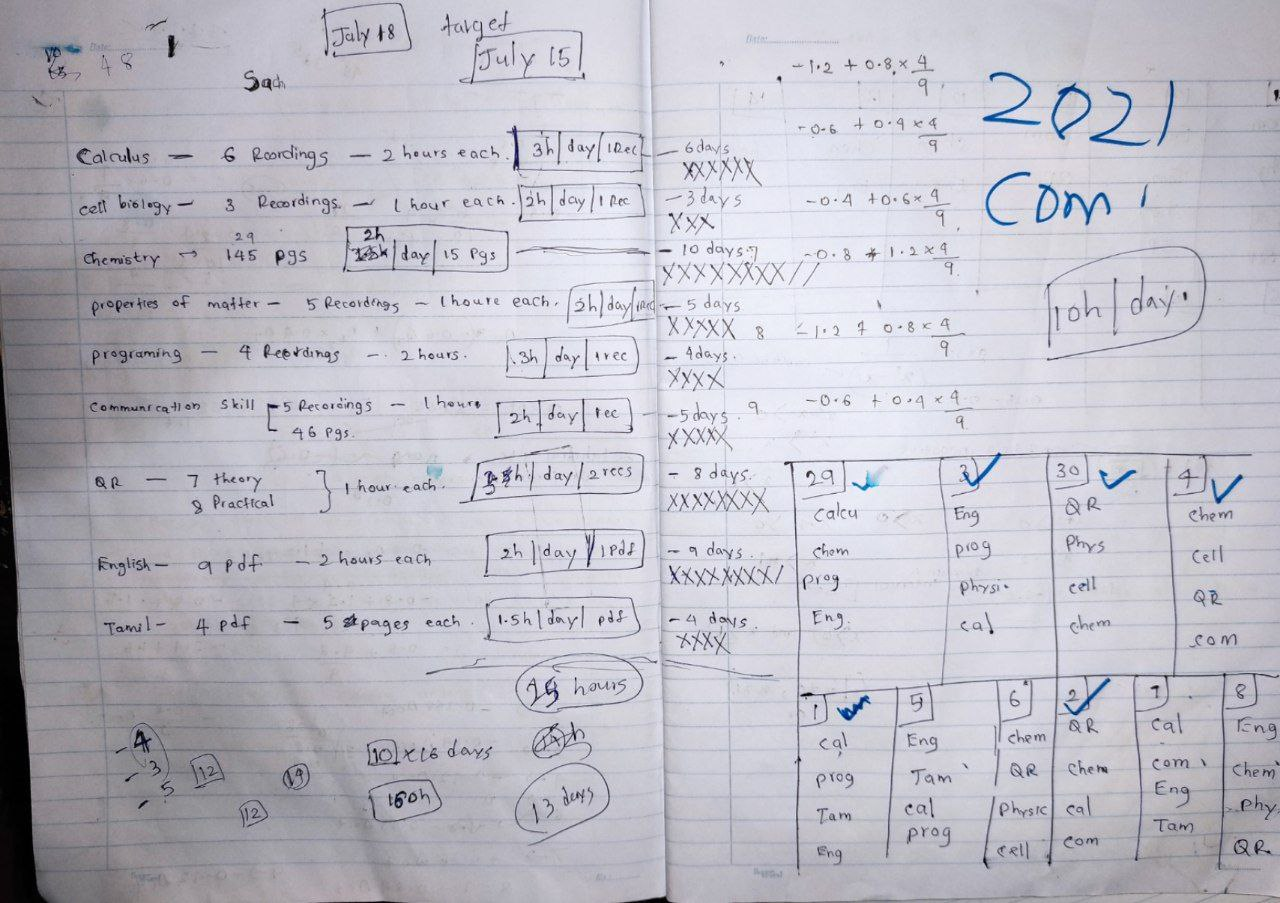 July 18 target
July 15
48
Sach
Calculus — 6 Roordings — 2 hours each. 3h | day | 1 Rec — 6 days
XXXXXX
cell biology — 3 Recordings — 1 hour each. 2h | day | 1 Rec — 3 days
XXX
29
2h
Chemistry → 145 pgs | day | 15 Pgs — 10 days
XXXXXXXX//
properties of matter — 5 Recordings — 1 houre each. 2h | day | 1Rec — 5 days
XXXXX
programing — 4 Recordings — 2 hours. 3h | day | 1 rec — 4 days.
XXXX
Communication Skill 5 Recordings — 1 hours 2h | day | 1 rec — 5 days.
46 Pgs.
XXXXX
QR — 7 theory
8 Practical
1 hour each. day | 2 recs — 8 days.
XXXXXXXX
English — 9 pdf — 2 hours each 2h | day | 1 Pdf — 9 days.
XXXXXXXX/
Tamil — 4 pdf — 5 pages each. 1.5h | day | pdf — 4 days.
XXXX
hours
10 x 16 days
160h 13 days
-4
-3
-5
12
19
12
-1.2 + 0.8 x 4/9
-0.6 + 0.4 x 4/9
-0.4 + 0.6 x 4/9
-0.8 + 1.2 x 4/9
8 -1.2 + 0.8 x 4/9
9 -0.6 + 0.4 x 4/9
2021
Com
10h | day.
29 3 30 4
Calcu Eng QR Chem
Chem prog Phys Cell
prog physi. cell QR
Eng. cal chem com
1 5 6 2 7 8
cal Eng chem QR Cal Eng
prog Tam QR Chem com Chem
Tam cal Physic cal Eng Phy
Eng prog cell com Tam QR.